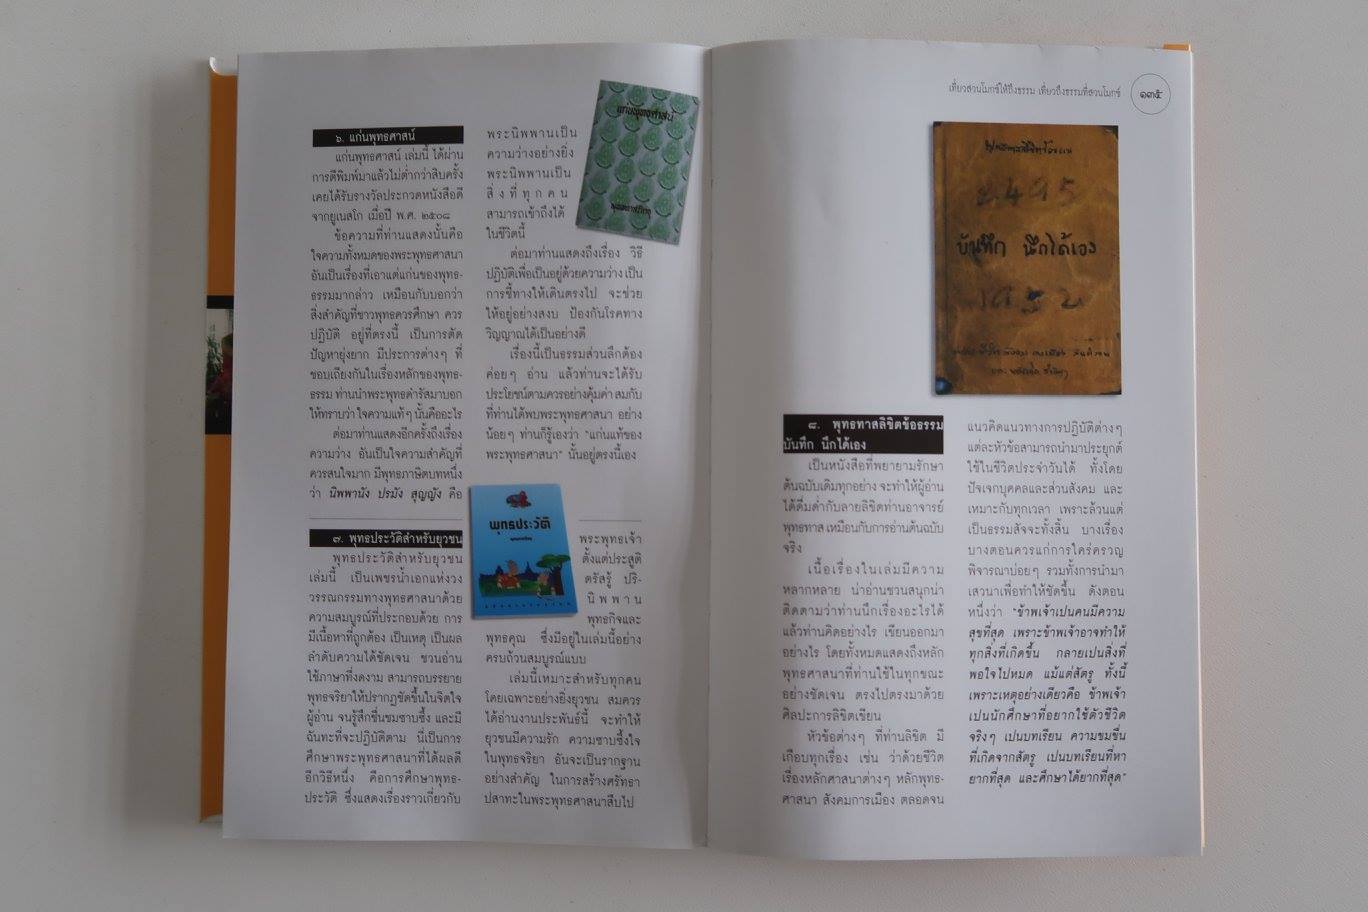 ๖. แก่นพุทธศาสน์
แก่นพุทธศาสน์ เล่มนี้ ได้ผ่าน
การตีพิมพ์มาแล้วไม่ต่ำกว่าสิบครั้ง
เคยได้รับรางวัลประกวดหนังสือดี
จากยูเนสโก เมื่อปี พ.ศ. ๒๕๐๘
ข้อความที่ท่านแสดงนั้นคือ
ใจความทั้งหมดของพระพุทธศาสนา
อันเป็นเรื่องที่เอาแต่แก่นของพุทธ-
ธรรมมากล่าว เหมือนกับบอกว่า
สิ่งสำคัญที่ชาวพุทธควรศึกษา ควร
ปฏิบัติ อยู่ที่ตรงนี้ เป็นการตัด
ปัญหายุ่งยาก มีประการต่างๆ ที่
ชอบเถียงกันในเรื่องหลักของพุทธ-
ธรรม ท่านนำพระพุทธดำรัสมาบอก
ให้ทราบว่า ใจความแท้ๆ นั้นคืออะไร
ต่อมาท่านแสดงอีกครั้งถึงเรื่อง
ความว่าง อันเป็นใจความสำคัญที่
ควรสนใจมาก มีพุทธภาษิตบทหนึ่ง
ว่า นิพพานัง ปรมัง สุญญัง คือ
พระนิพพานเป็น
ความว่างอย่างยิ่ง
พระนิพพานเป็น
สิ่งที่ทุกคน
สามารถเข้าถึงได้
ในชีวิตนี้
ต่อมาท่านแสดงถึงเรื่อง วิธี
ปฏิบัติเพื่อเป็นอยู่ด้วยความว่าง เป็น
การชี้ทางให้เดินตรงไป จะช่วย
ให้อยู่อย่างสงบ ป้องกันโรคทาง
วิญญาณได้เป็นอย่างดี
เรื่องนี้เป็นธรรมส่วนลึกต้อง
ค่อยๆ อ่าน แล้วท่านจะได้รับ
ประโยชน์ตามควรอย่างคุ้มค่า สมกับ
ที่ท่านได้พบพระพุทธศาสนา อย่าง
น้อยๆ ท่านก็รู้เองว่า "แก่นแท้ของ
พระพุทธศาสนา" นั้นอยู่ตรงนี้เอง
แก่นพุทธศาสน์
พุทธทาสภิกขุ
๗. พุทธประวัติสำหรับยุวชน
พุทธประวัติสำหรับยุวชน
เล่มนี้ เป็นเพชรน้ำเอกแห่งวง
วรรณกรรมทางพุทธศาสนาด้วย
ความสมบูรณ์ที่ประกอบด้วย การ
มีเนื้อหาที่ถูกต้อง เป็นเหตุ เป็นผล
ลำดับความได้ชัดเจน ชวนอ่าน
ใช้ภาษาที่งดงาม สามารถบรรยาย
พุทธจริยาให้ปรากฏชัดขึ้นในจิตใจ
ผู้อ่าน จนรู้สึกชื่นชมซาบซึ้ง และมี
ฉันทะที่จะปฏิบัติตาม นี่เป็นการ
ศึกษาพระพุทธศาสนาที่ได้ผลดี
อีกวิธีหนึ่ง คือการศึกษาพุทธ-
ประวัติ ซึ่งแสดงเรื่องราวเกี่ยวกับ
พุทธประวัติ
พระพุทธเจ้า
ตั้งแต่ประสูติ
ตรัสรู้ ปริ-
นิพพาน
พุทธกิจและ
พุทธคุณ ซึ่งมีอยู่ในเล่มนี้อย่าง
ครบถ้วนสมบูรณ์แบบ
เล่มนี้เหมาะสำหรับทุกคน
โดยเฉพาะอย่างยิ่งยุวชน สมควร
ได้อ่านงานประพันธ์นี้ จะทำให้
ยุวชนมีความรัก ความซาบซึ้งใจ
ในพุทธจริยา อันจะเป็นรากฐาน
อย่างสำคัญ ในการสร้างศรัทธา
ปสาทะในพระพุทธศาสนาสืบไป
เที่ยวสวนโมกข์ให้ถึงธรรม เที่ยวถึงธรรมที่สวนโมกข์
๑๓๕
พุทธทาสลิขิตข้อธรรม
2495
บันทึก นึกได้เอง
1952
๘. พุทธทาสลิขิตข้อธรรม
บันทึก นึกได้เอง
เป็นหนังสือที่พยายามรักษา
ต้นฉบับเดิมทุกอย่าง จะทำให้ผู้อ่าน
ได้ดื่มด่ำกับลายลิขิตท่านอาจารย์
พุทธทาส เหมือนกับการอ่านต้นฉบับ
จริง
เนื้อเรื่องในเล่มมีความ
หลากหลาย น่าอ่านชวนสนุกน่า
ติดตามว่าท่านนึกเรื่องอะไรได้
แล้วท่านคิดอย่างไร เขียนออกมา
อย่างไร โดยทั้งหมดแสดงถึงหลัก
พุทธศาสนาที่ท่านใช้ในทุกขณะ
อย่างชัดเจน ตรงไปตรงมาด้วย
ศิลปะการลิขิตเขียน
หัวข้อต่างๆ ที่ท่านลิขิต มี
เกือบทุกเรื่อง เช่น ว่าด้วยชีวิต
เรื่องหลักศาสนาต่างๆ หลักพุทธ-
ศาสนา สังคมการเมือง ตลอดจน
แนวคิดแนวทางการปฏิบัติต่างๆ
แต่ละหัวข้อสามารถนำมาประยุกต์
ใช้ในชีวิตประจำวันได้ ทั้งโดย
ปัจเจกบุคคลและส่วนสังคม และ
เหมาะกับทุกเวลา เพราะล้วนแต่
เป็นธรรมสัจจะทั้งสิ้น บางเรื่อง
บางตอนควรแก่การใคร่ครวญ
พิจารณาบ่อยๆ รวมทั้งการนำมา
เสวนาเพื่อทำให้ชัดขึ้น ดังตอน
หนึ่งว่า "ข้าพเจ้าเปนคนมีความ
สุขที่สุด เพราะข้าพเจ้าอาจทำให้
ทุกสิ่งที่เกิดขึ้น กลายเปนสิ่งที่
พอใจไปหมด แม้แต่สัตรู ทั้งนี้
เพราะเหตุอย่างเดียวคือ ข้าพเจ้า
เปนนักศึกษาที่อยากใช้ตัวชีวิต
จริงๆ เปนบทเรียน ความขมขื่น
ที่เกิดจากสัตรู เปนบทเรียนที่หา
ยากที่สุด และศึกษาได้ยากที่สุด"